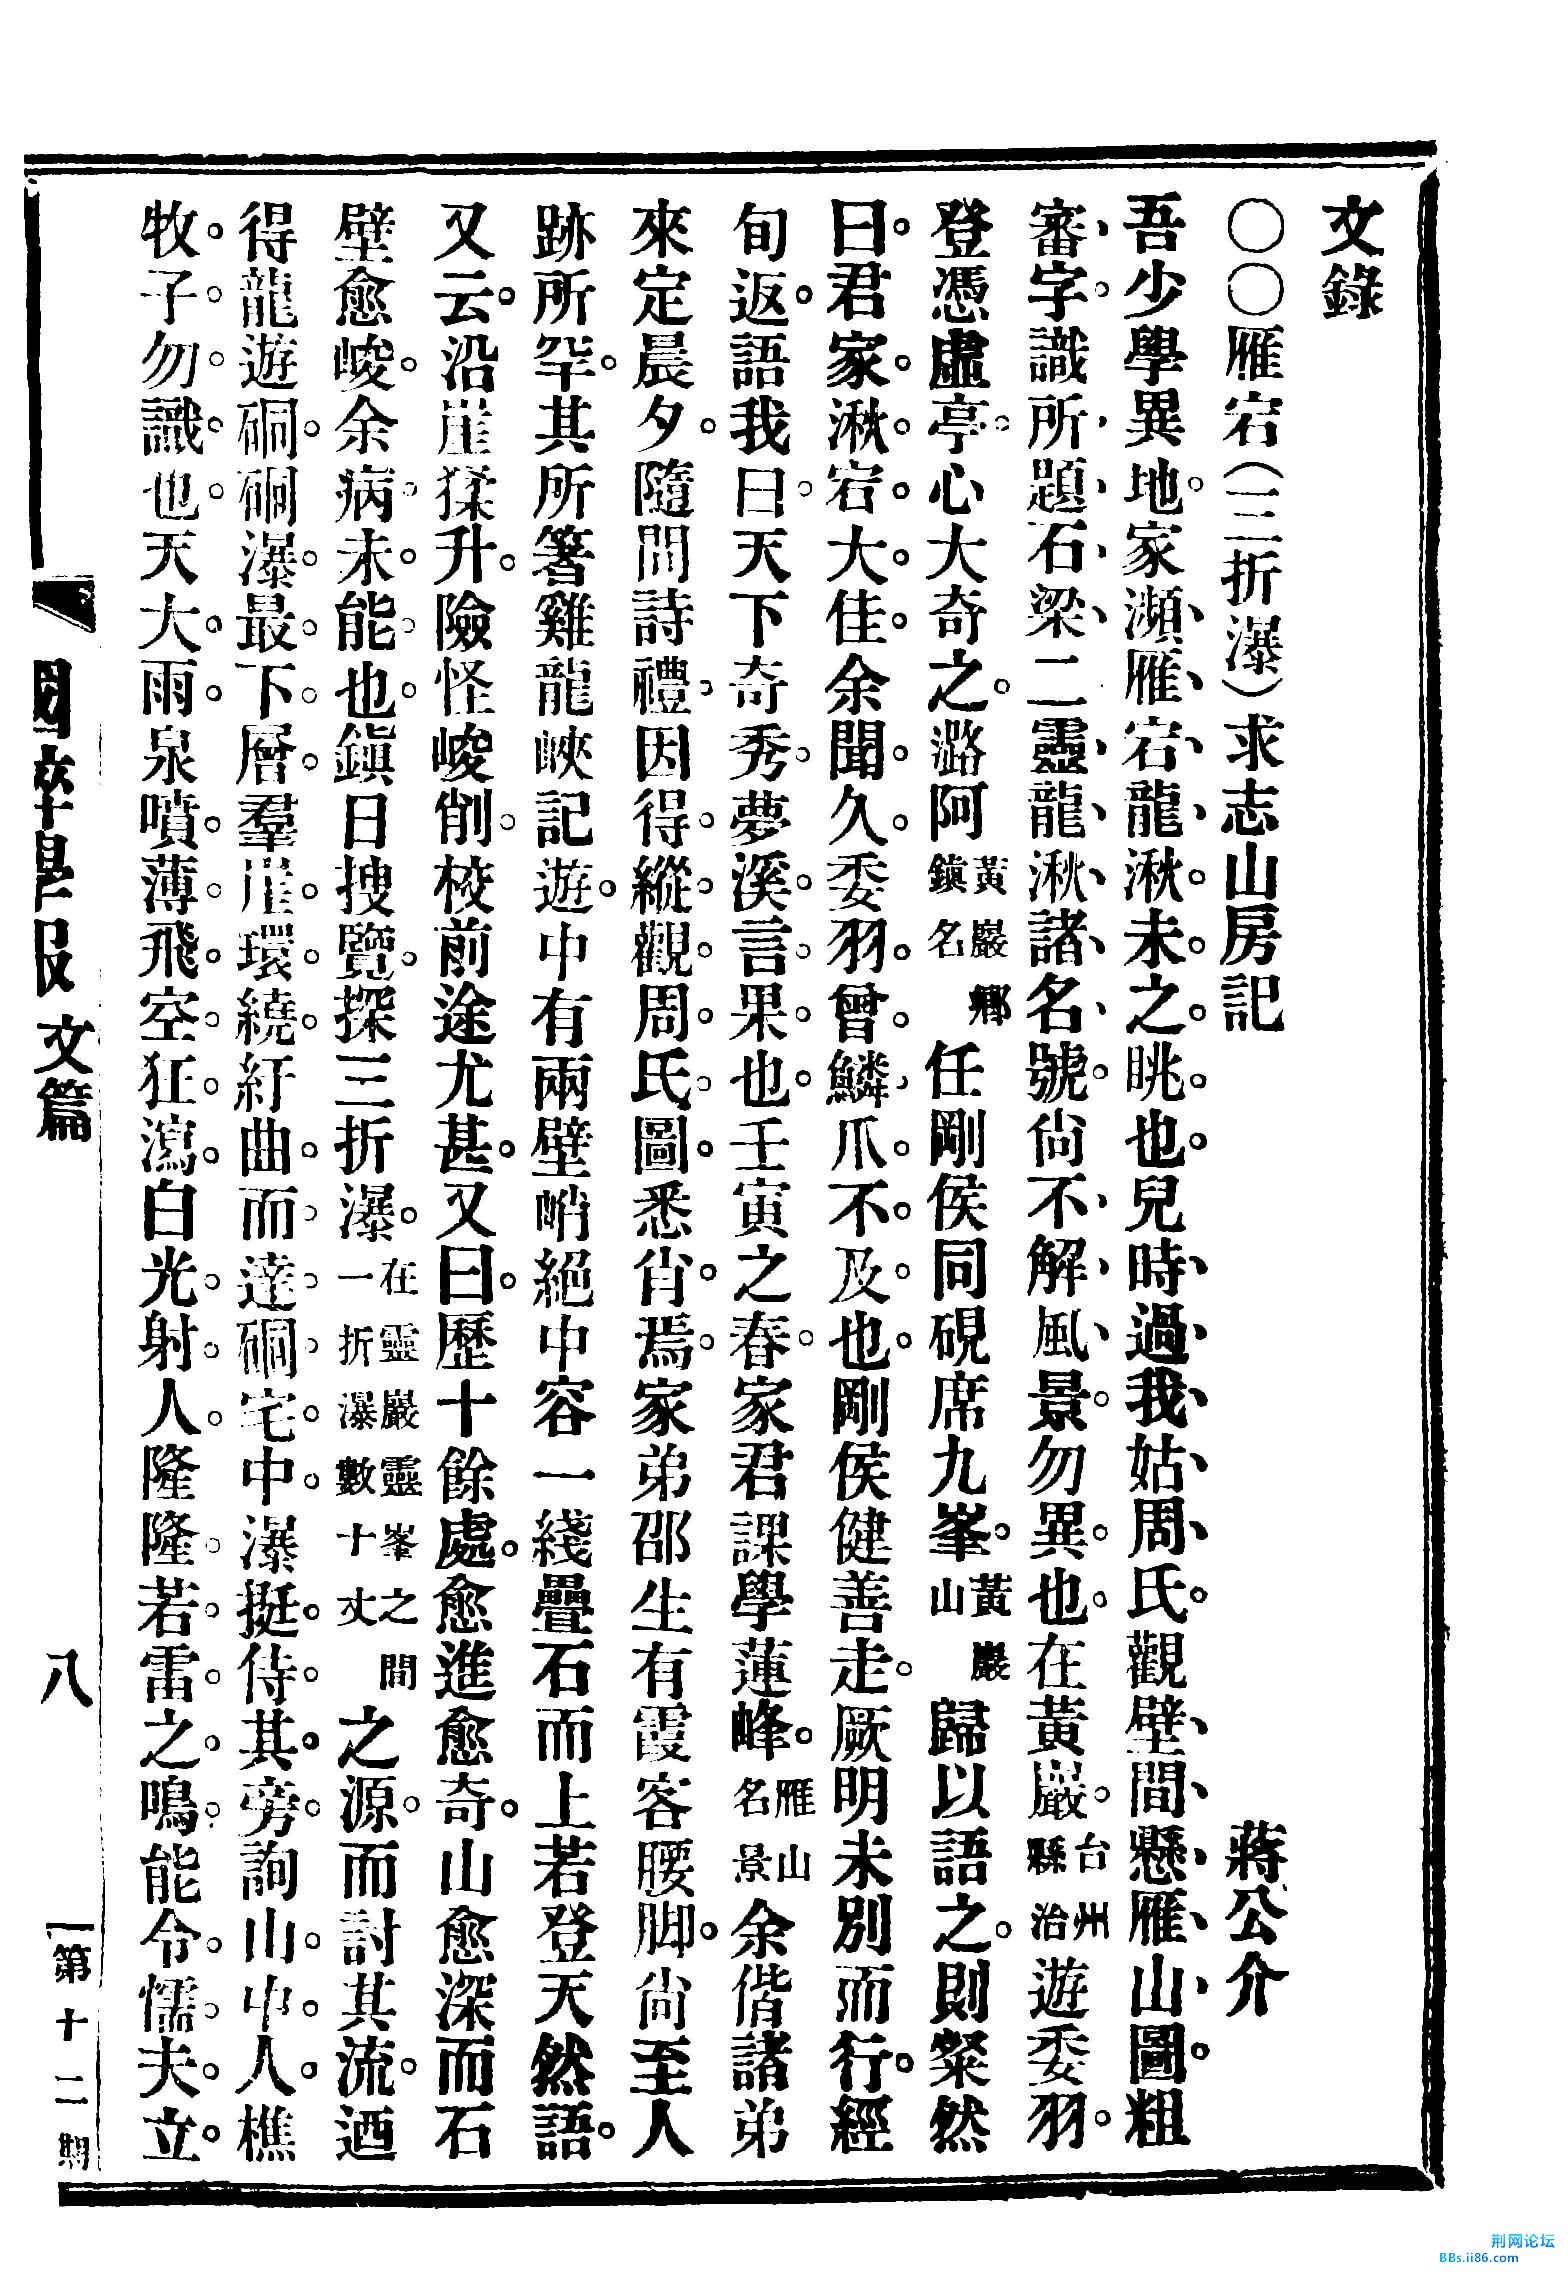 文錄
〇〇雁宕(三折瀑)求志山房記 蔣公介
吾少學異地。家瀕雁宕龍湫。未之眺也。兒時過我姑周氏。觀壁間懸雁山圖。粗
審字識所題石梁二靈龍湫諸名號。尙不解風景勿異也。在黃巖。台州縣治遊委羽。
登憑虛亭。心大奇之。潞阿黃巖鄉鎮名任剛侯同硯席九峯。黃巖山歸以語之。則粲然
曰。君家湫宕大佳。余聞久。委羽曾鱗爪不及也。剛侯健善走。厥明未別而行。經
旬返。語我曰。天下奇秀。夢溪言果也。壬寅之春。家君課學蓮峰。雁山名景余偕諸弟
來定晨夕。隨問詩禮。因得縱觀周氏圖。悉肖焉。家弟邵生有霞客腰脚。尙至人
跡所罕。其所箸雞龍峽記遊。中有兩壁峭絕中容一綫疊石而上若登天然語。
又云。沿崖猱升。險怪峻削。校前途尤甚。又曰。歷十餘處。愈進愈奇。山愈深而石
壁愈峻。余病未能也。鎮日搜覽。探三折瀑。在靈巖靈峯之間一折瀑數十丈之源。而討其流。迺
得龍遊硐。硐瀑最下層。羣崖環繞。紆曲而達硐。宅中瀑挺。侍其旁。詢山中人。樵
牧子勿識也。天大雨。泉噴薄飛空。狂瀉白光射人。隆隆若雷之鳴。能令懦夫立。
國粹學報 文篇
八
第十二期
荆网论坛
BBs.ii86.com